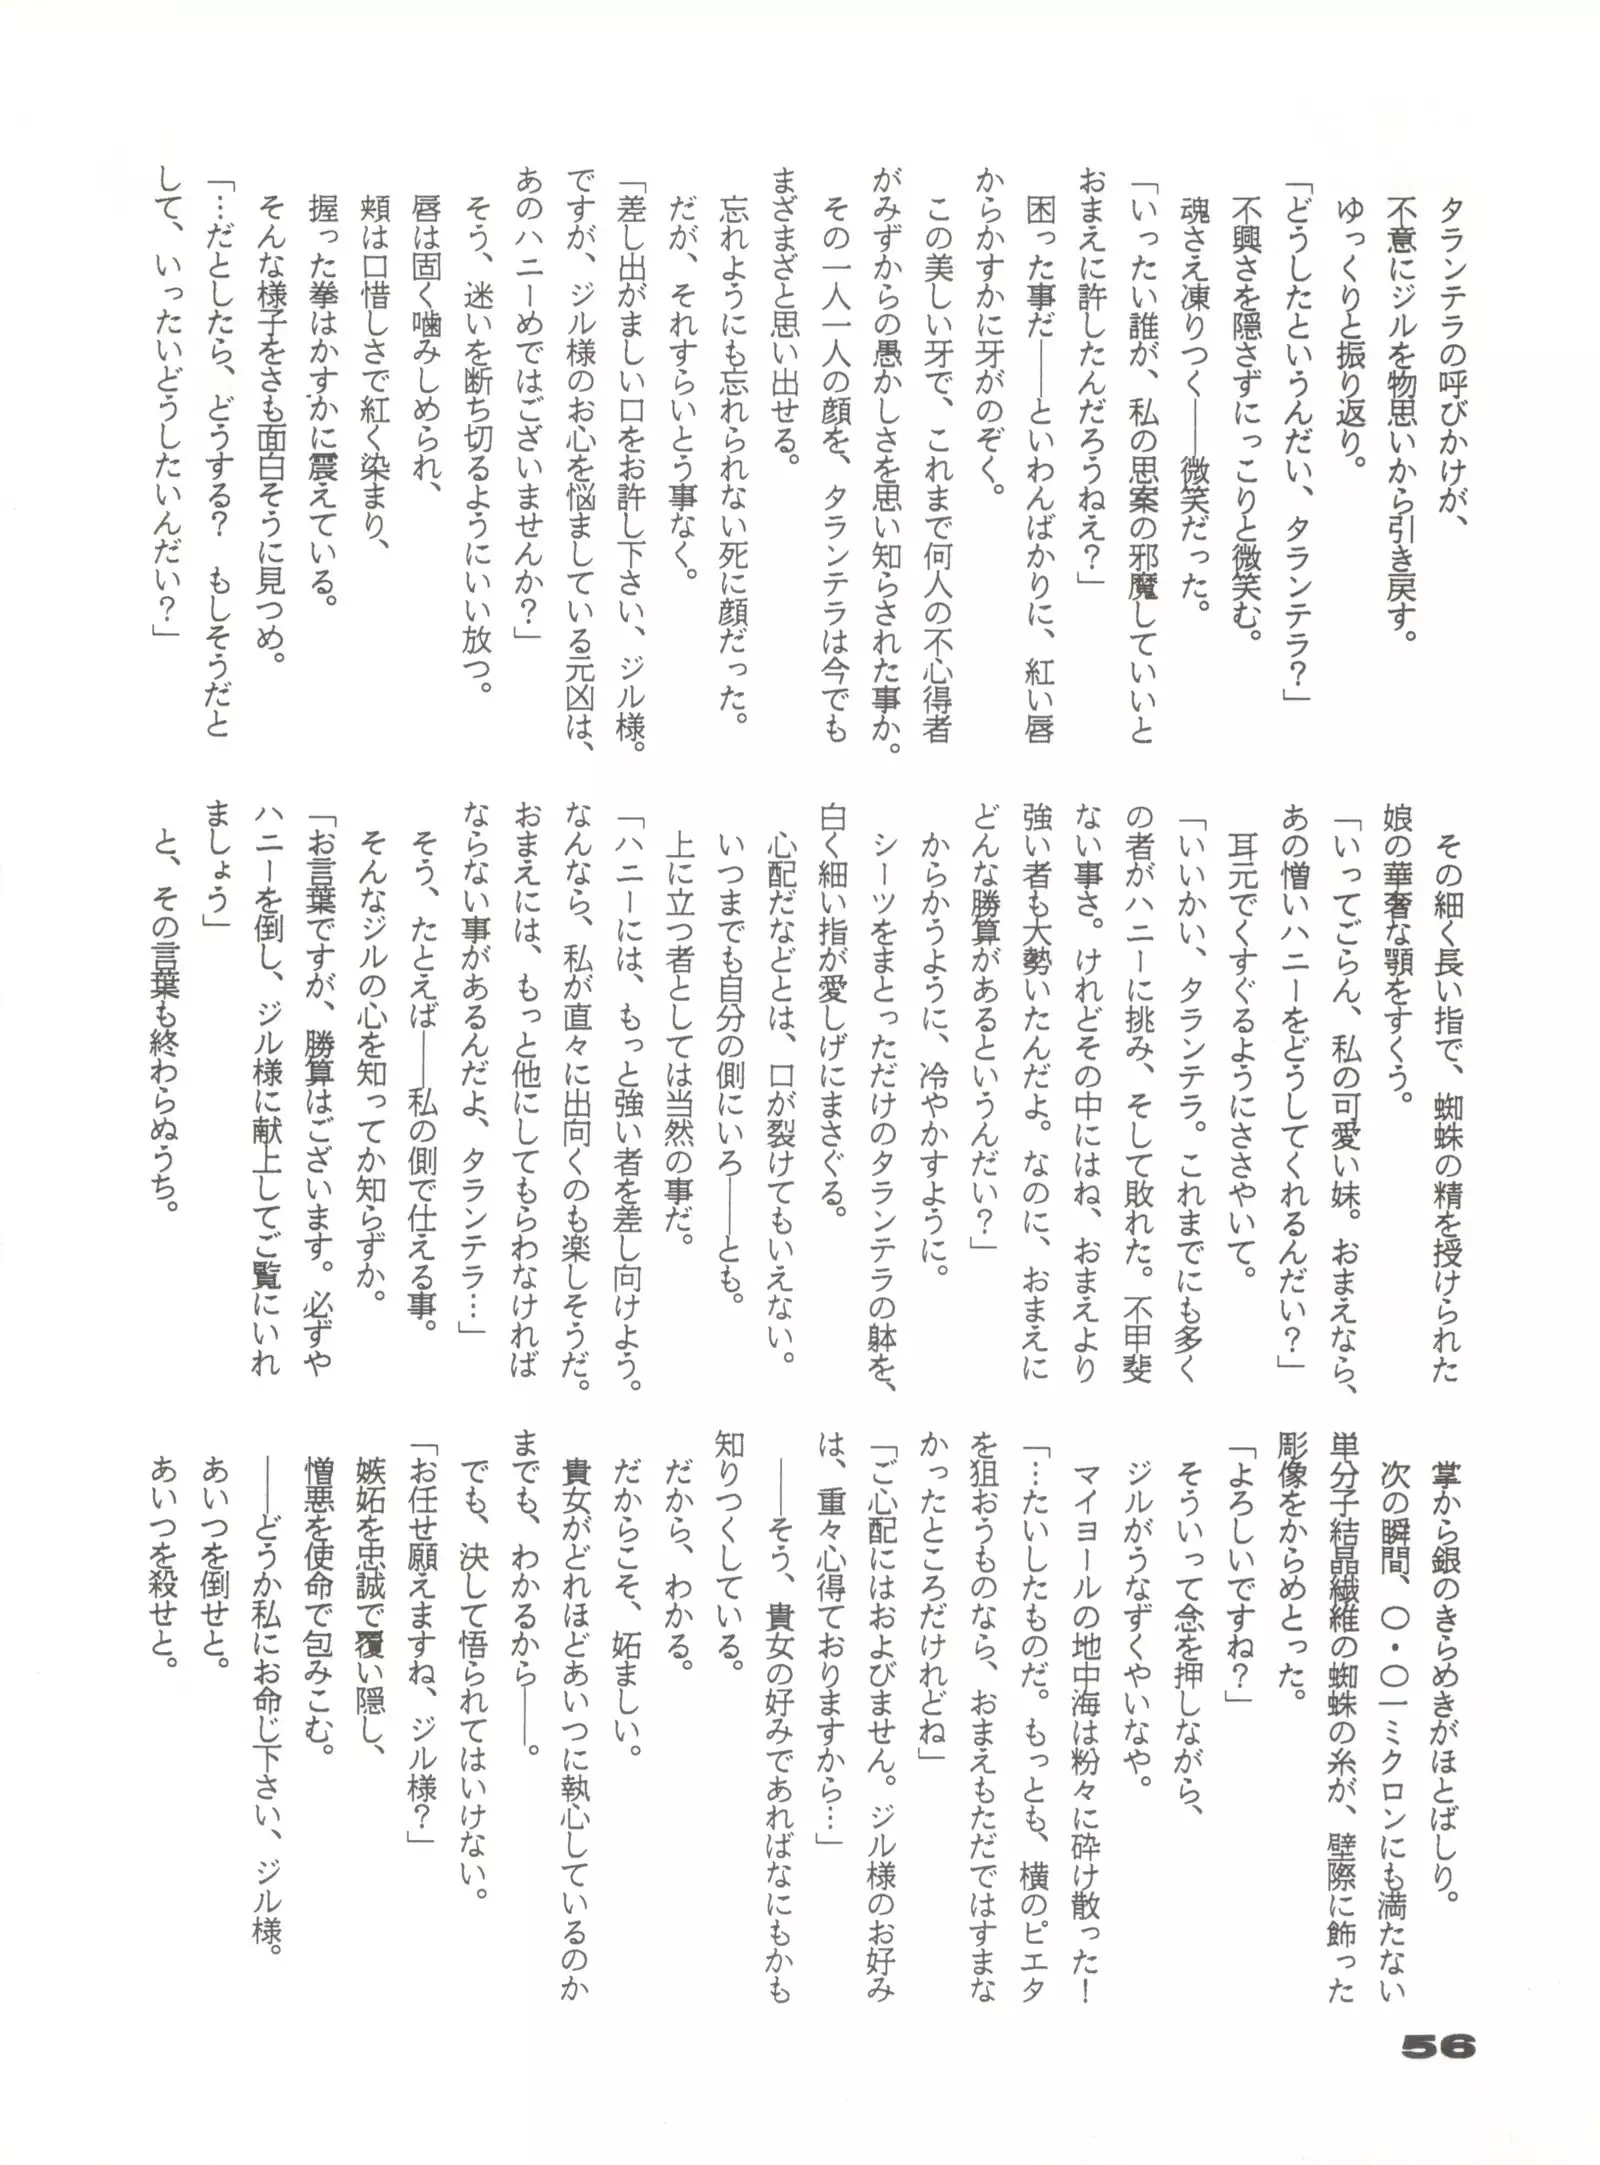 タランテラの呼びかけが、
不意にジルを物思いから引き戻す。
ゆっくりと振り返り。
「どうしたというんだい、タランテラ？」
不興さを隠さずにっこりと微笑む。
魂さえ凍りつく――微笑だった。
「いったい誰が、私の思案の邪魔していいと
おまえに許したんだろうねえ？」
困った事だ――といわんばかりに、紅い唇
からかすかに牙がのぞく。
この美しい牙で、これまで何人の不心得者
がみずからの愚かしさを思い知らされた事か。
その一人一人の顔を、タランテラは今でも
まざまざと思い出せる。
忘れようにも忘れられない死に顔だった。
だが、それすらいとう事なく。
「差し出がましい口をお許し下さい、ジル様。
ですが、ジル様のお心を悩ましている元凶は、
あのハニーめではございませんか？」
そう、迷いを断ち切るようにいい放つ。
唇は固く噛みしめられ、
頬は口惜しさで紅く染まり、
握った拳はかすかに震えている。
そんな様子をさも面白そうに見つめ。
「…だとしたら、どうする？　もしそうだと
して、いったいどうしたいんだい？」
その細く長い指で、蜘蛛の精を授けられた
娘の華奢な顎をすくう。
「いってごらん、私の可愛い妹。おまえなら、
あの憎いハニーをどうしてくれるんだい？」
耳元でくすぐるようにささやいて。
「いいかい、タランテラ。これまでにも多く
の者がハニーに挑み、そして敗れた。不甲斐
ない事さ。けれどその中にはね、おまえより
強い者も大勢いたんだよ。なのに、おまえに
どんな勝算があるというんだい？」
からかうように、冷やかすように。
シーツをまとっただけのタランテラの躰を、
白く細い指が愛しげにまさぐる。
心配だなどとは、口が裂けてもいえない。
いつまでも自分の側にいろ――とも。
上に立つ者としては当然の事だ。
「ハニーには、もっと強い者を差し向けよう。
なんなら、私が直々に出向くのも楽しそうだ。
おまえには、もっと他にしてもらわなければ
ならない事があるんだよ、タランテラ…」
そう、たとえば――私の側で仕える事。
そんなジルの心を知ってか知らずか。
「お言葉ですが、勝算はございます。必ずや
ハニーを倒し、ジル様に献上してご覧にいれ
ましょう」
と、その言葉も終わらぬうち。
掌から銀のきらめきがほとばしり。
次の瞬間、〇・〇一ミクロンにも満たない
単分子結晶繊維の蜘蛛の糸が、壁際に飾った
彫像をからめとった。
「よろしいですね？」
そういって念を押しながら、
ジルがうなずくやいなや。
マイヨールの地中海は粉々に砕け散った！
「…たいしたものだ。もっとも、横のピエタ
を狙おうものなら、おまえもただではすまな
かったところだけれどね」
「ご心配にはおよびません。ジル様のお好み
は、重々心得ておりますから…」
――そう、貴女の好みであればなにもかも
知りつくしている。
だから、わかる。
だからこそ、妬ましい。
貴女がどれほどあいつに執心しているのか
までも、わかるから――。
でも、決して悟られてはいけない。
「お任せ願えますね、ジル様？」
嫉妬を忠誠で覆い隠し、
憎悪を使命で包みこむ。
――どうか私にお命じ下さい、ジル様。
あいつを倒せと。
あいつを殺せと。
56